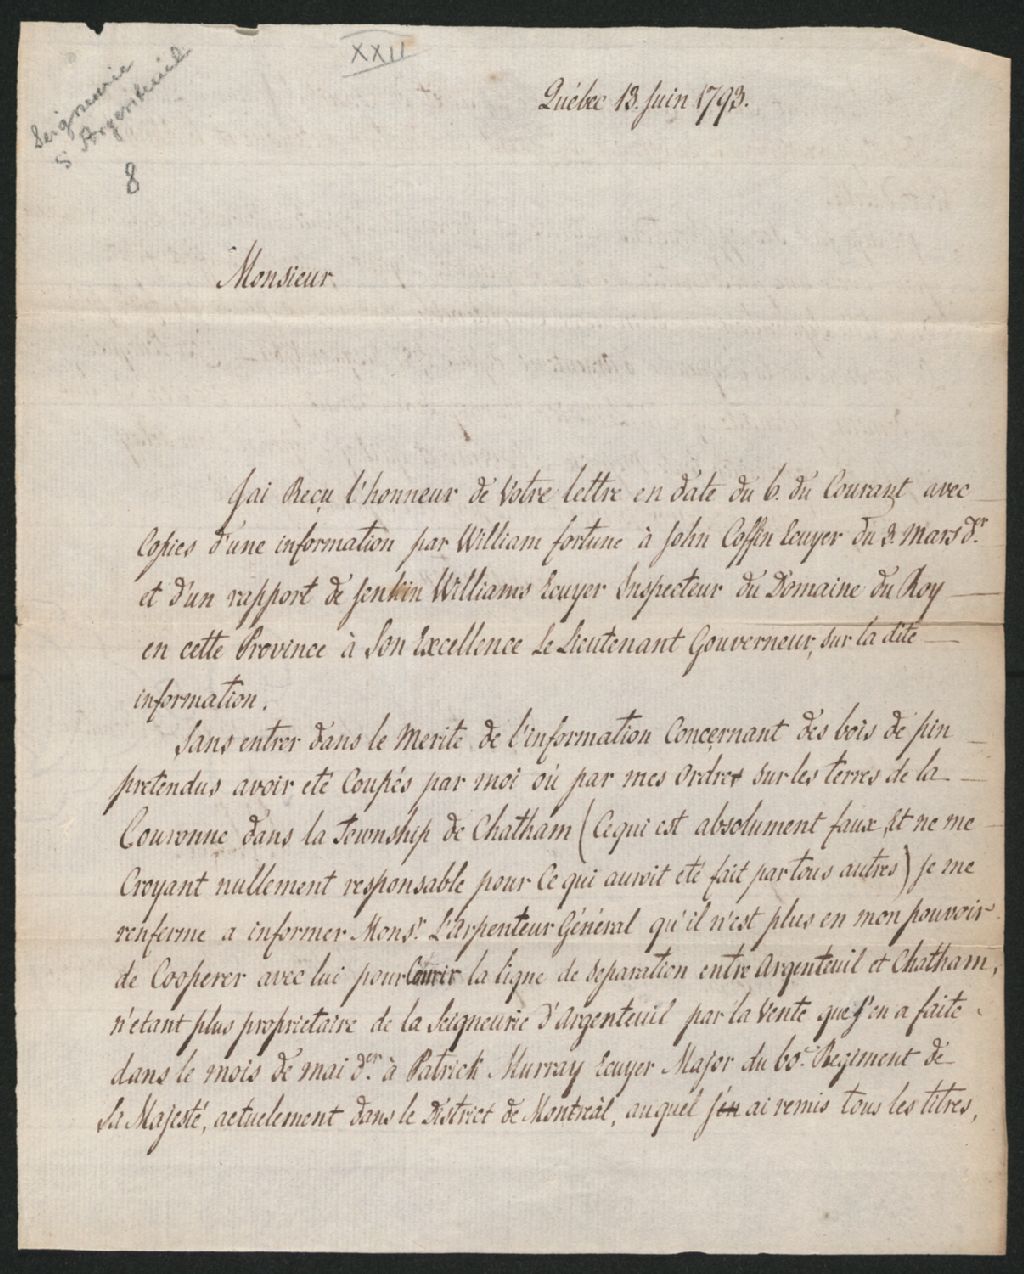 XXII
Seigneurie
S Argenteuil
8
Québec 13. Juin 1793.
Monsieur.
J'ai Reçu l'honneur de Votre lettre en date du 6. du Courant avec
Copies d'une information par William fortune à John Coffin Ecuyer du 2 Mars der.
et d'un rapport de Jenkin Williams Ecuyer Inspecteur du Domaine du Roy
en cette Province à Son Excellence Le Lieutenant Gouverneur, sur la dite
information.
Sans entrer dans le Merite de l'information Concernant des bois de pin
pretendus avoir eté Coupés par moi où par mes Ordres sur les terres de la
Couronne dans la Township de Chatham (Ce qui est absolument faux, Et ne me
Croyant nullement responsable pour Ce qui auroit eté fait par tous autres) je me
renferme a informer Monsr. L'arpenteur Général qu'il n'est plus en mon pouvoir
de Cooperer avec lui pour Courir la ligne de separation entre Argenteuil et Chatham,
n'etant plus proprietaire de la Seigneurie D'Argenteuil par la Vente que J'en a faite
dans le mois de mai der. à Patrick Murray Ecuyer Major du 60e Regiment de
Sa Majesté, actuelement dans le District de Montreàl, auquel j'en ai remis tous les titres,